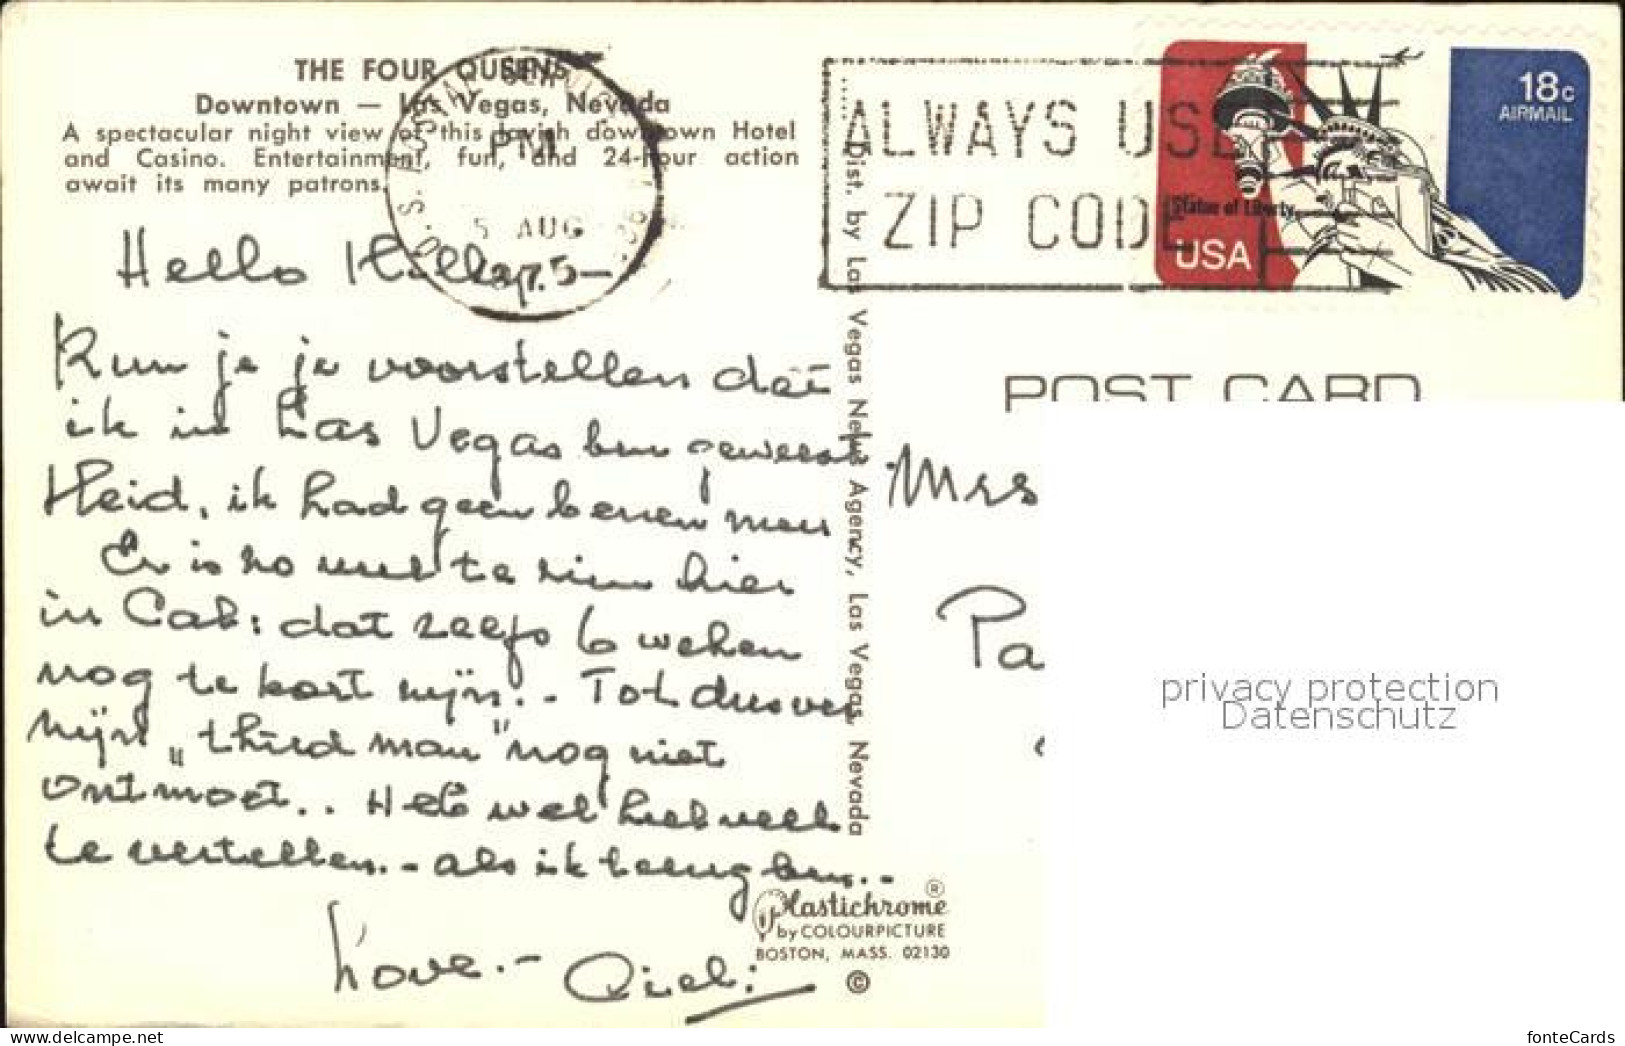 THE FOUR QUEENS
Downtown — Las Vegas, Nevada
A spectacular night view of this lavish downtown Hotel
and Casino. Entertainment, fun, and 24-hour action
await its many patrons.
U.S. POSTAL SERVICE
PM
5 AUG
1975
ALWAYS USE
ZIP CODE
18c
AIRMAIL
Statue of Liberty
USA
Hello
Kun je je voorstellen dat
ik in Las Vegas ben geweest
Heid, ik had geen benen meer
Er is zo veel te zien hier
in Cal: dat zelfs 6 weken
nog te kort zijn.. - Tot dusver
mijn „third man" nog niet
ontmoet.. Heb wel heel veel
te vertellen. - als ik terug ben. -
Love. -
Dist. by Las Vegas News Agency, Las Vegas, Nevada
POST CARD
Mrs
Pa
Plastichrome ®
by COLOURPICTURE
BOSTON, MASS. 02130
©
privacy protection
Datenschutz
fonteCards